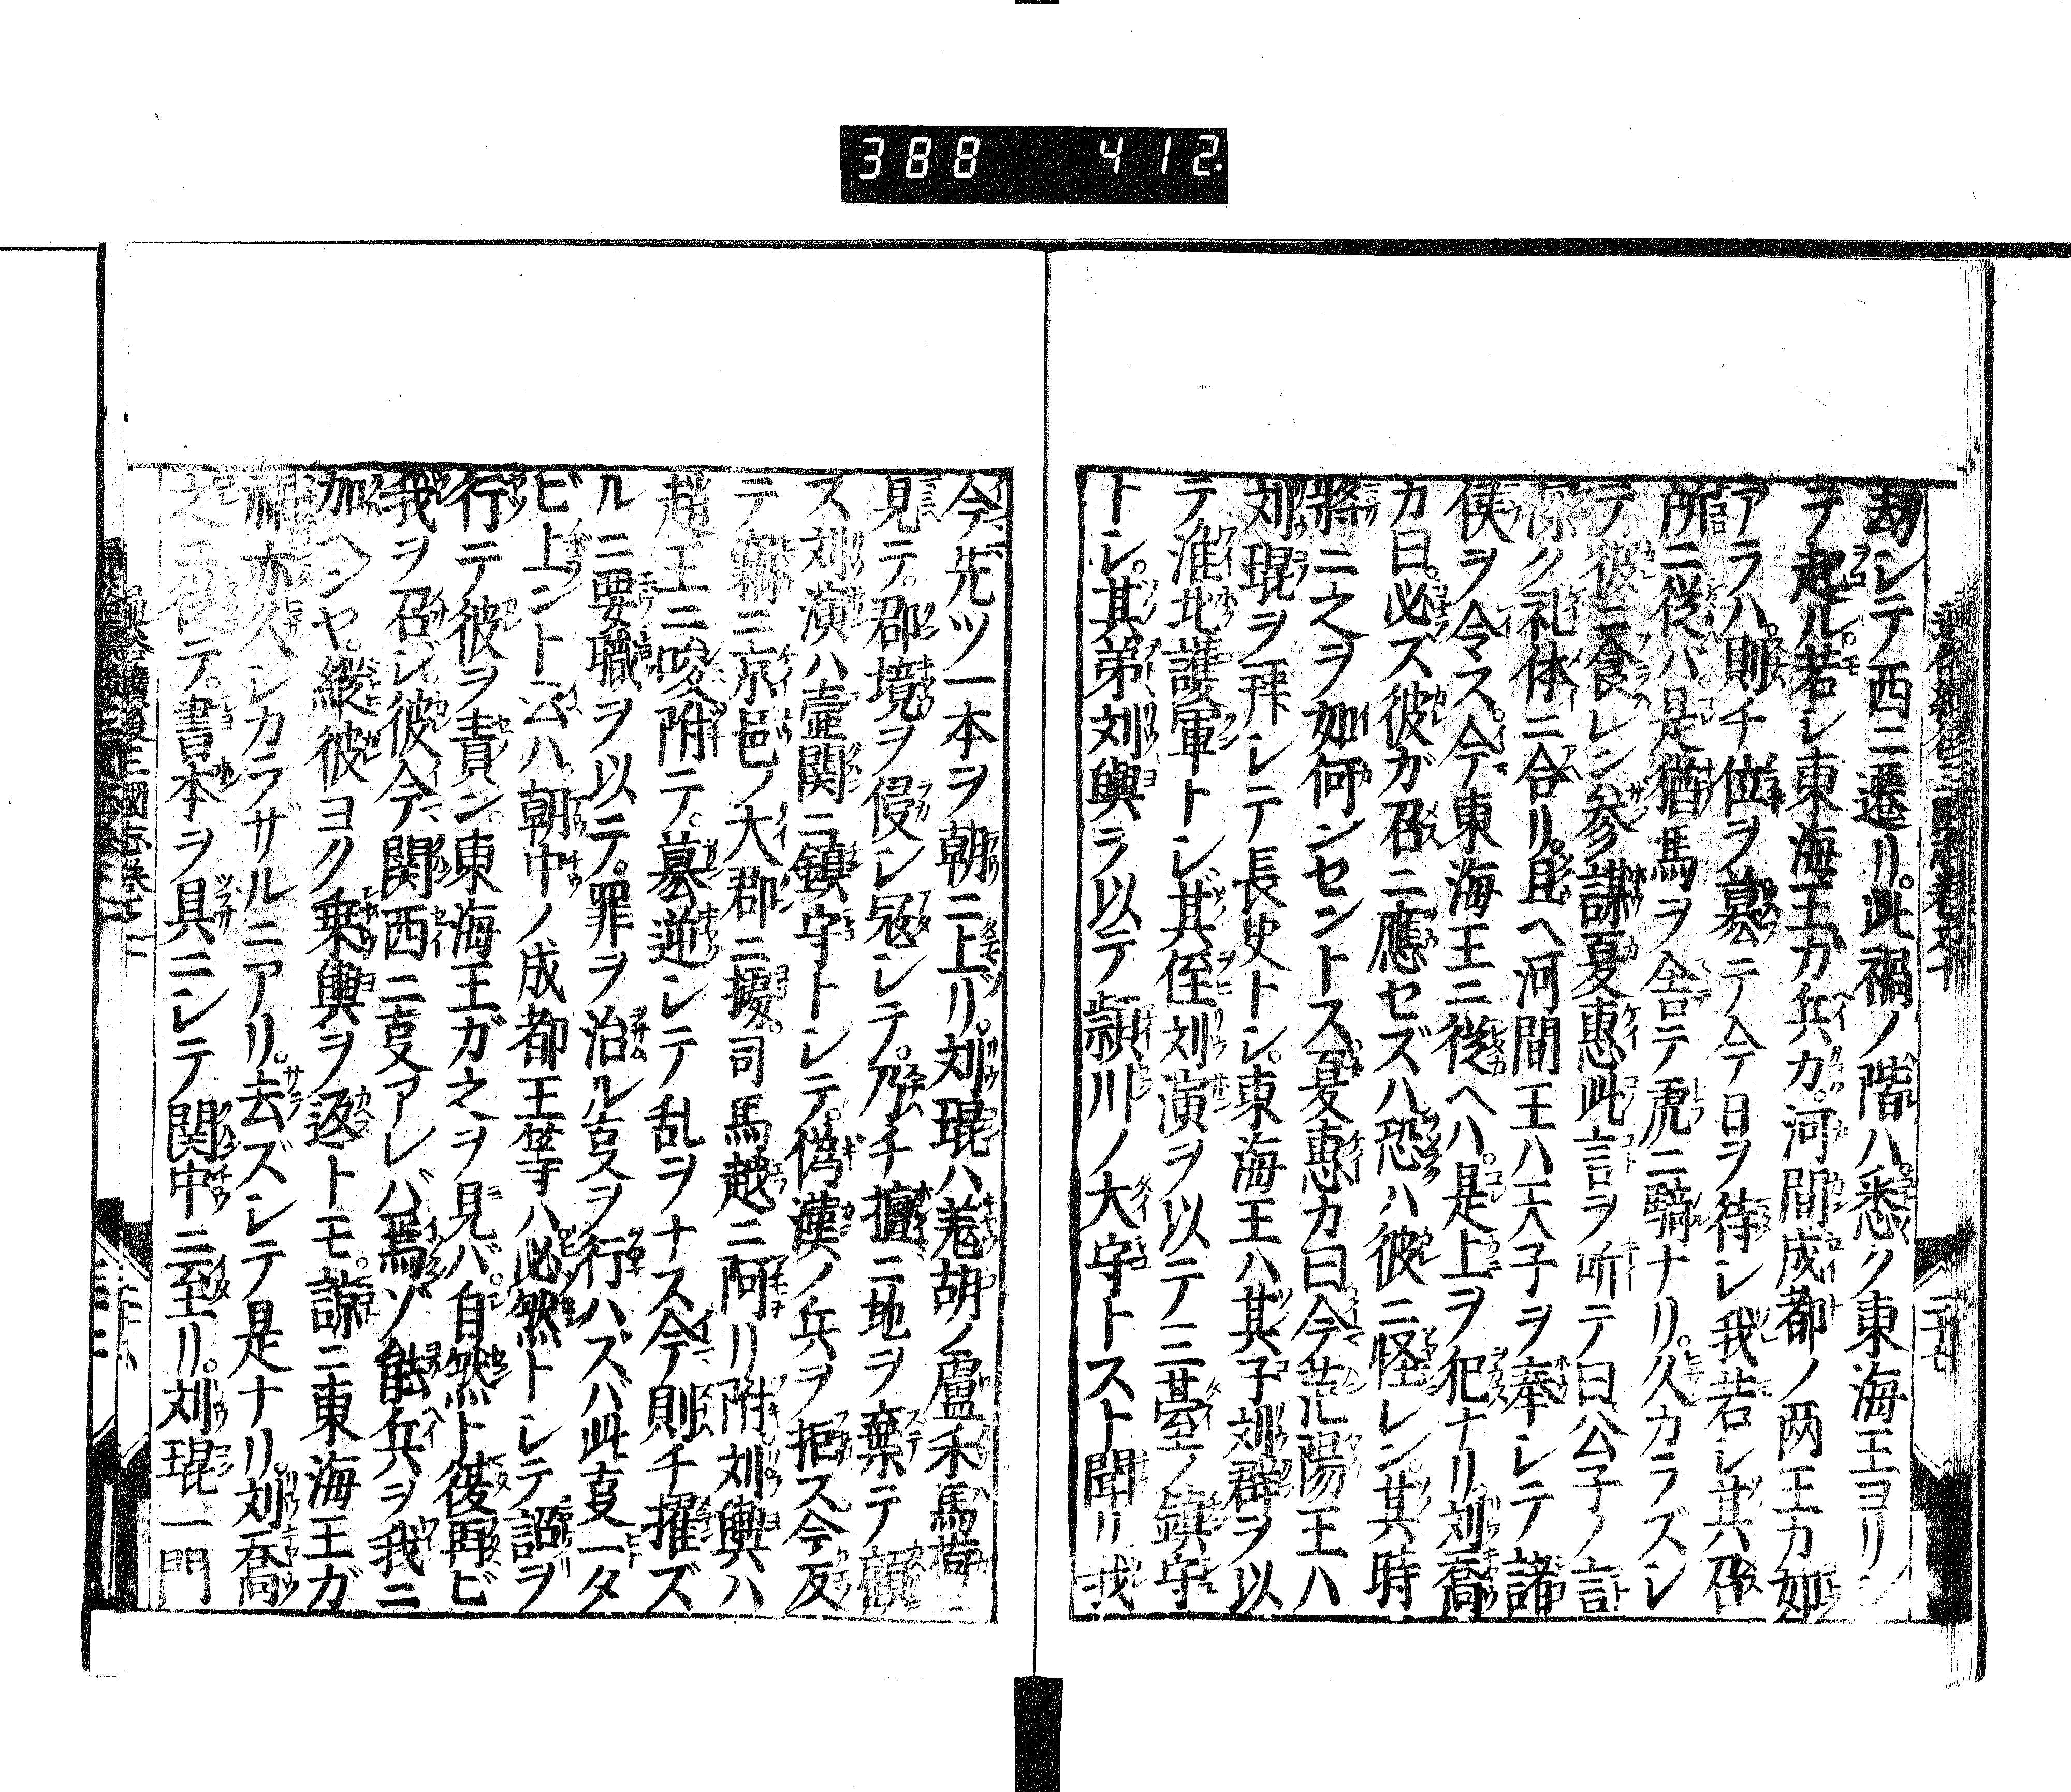 388 412.
劫シテ西ニ遷リ。此禍ノ階ハ。悉ク東海王ヨリシ
テ起ル。若シ東海王ガ兵カ。河間成都ノ両王カ如
アラハ。則チ位ヲ簒テ今日ヲ待シ我若シ其召
所ニ從バ。是猶馬ヲ舎テ虎ニ騎ナリ。久カラズシ
テ彼ニ食レン参謀夏惠此言ヲ听テ曰公子ノ言
深ク礼体ニ合リ。且ヘ河間王ハ天子ヲ奉シテ諸
侯ヲ令ス。今東海王ニ從ヘハ。是上ヲ犯ナリ。刘喬
カ曰。必ス彼ガ召ニ應セズハ恐ハ彼ニ怪レン其時
將ニ之ヲ如何ンセントス夏惠カ曰今范陽王ハ
刘琨ヲ拜シテ長史トシ。東海王ハ其子刘群ヲ以
テ淮北護軍トシ。其侄刘演ヲ以テ三䑓ノ鎮守
トシ。其弟刘輿ヲ以テ頴川ノ大守トスト聞リ我
今先ツ一本ヲ朝ニ上リ。刘琨ハ羗胡ノ盧禾馬
見テ。郡境ヲ侵シ冦シテ。乃チ擅ニ地ヲ棄テ
ス刘演ハ壷関ニ鎮守トシテ。偽漢ノ兵ヲ拒ス今反
テ竊ニ京邑ノ大郡ニ擾。司馬越ニ阿リ附刘輿ハ
趙王ニ唆附テ。簒逆シテ乱ヲナス今則チ擢ズ
ルニ要職ヲ以テ。罪ヲ治ル㕝ヲ行ハズバ此㕝一タ
ビ上ント云ハ朝中ノ成都王等ハ必然トシテ詔ヲ
行テ彼ヲ責ン。東海王ガ之ヲ見バ自然ト後再ビ
我ヲ召シ彼今関西ニ㕝アレバ焉ゾ能兵ヲ我ニ
加ヘンヤ。縱彼ヨク乗輿ヲ返トモ。諒ニ東海王ガ
禍亦久シカラザルニアリ。去ズシテ是ナリ。刘喬
之ニ從テ。書本ヲ具ニシテ関中ニ至リ。刘琨一門